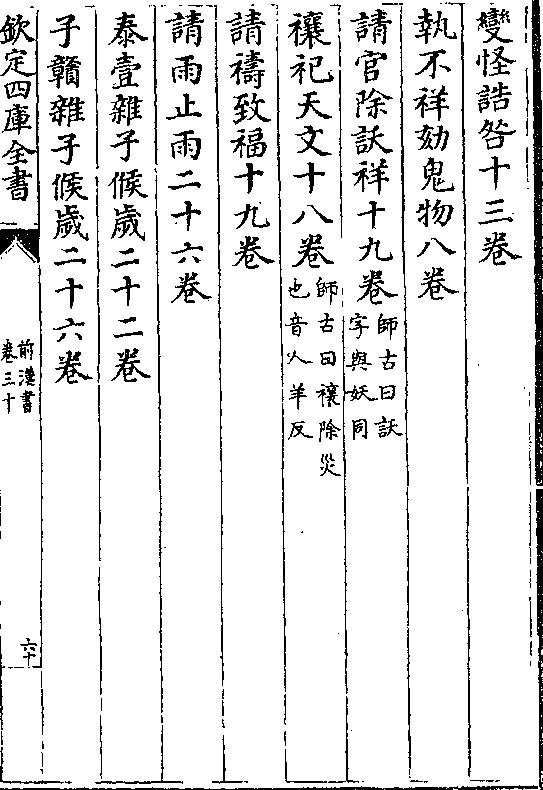 變怪誥咎十三卷
執不祥劾鬼物八卷
請官除訞祥十九卷師古曰訞字與妖同
禳祀天文十八卷師古曰禳除災也音人羊反
請禱致福十九卷
請雨止雨二十六卷
泰壹雜子候歲二十二卷
子贛雜子候歲二十六卷
欽定四庫全書
前漢書
卷三十
六十